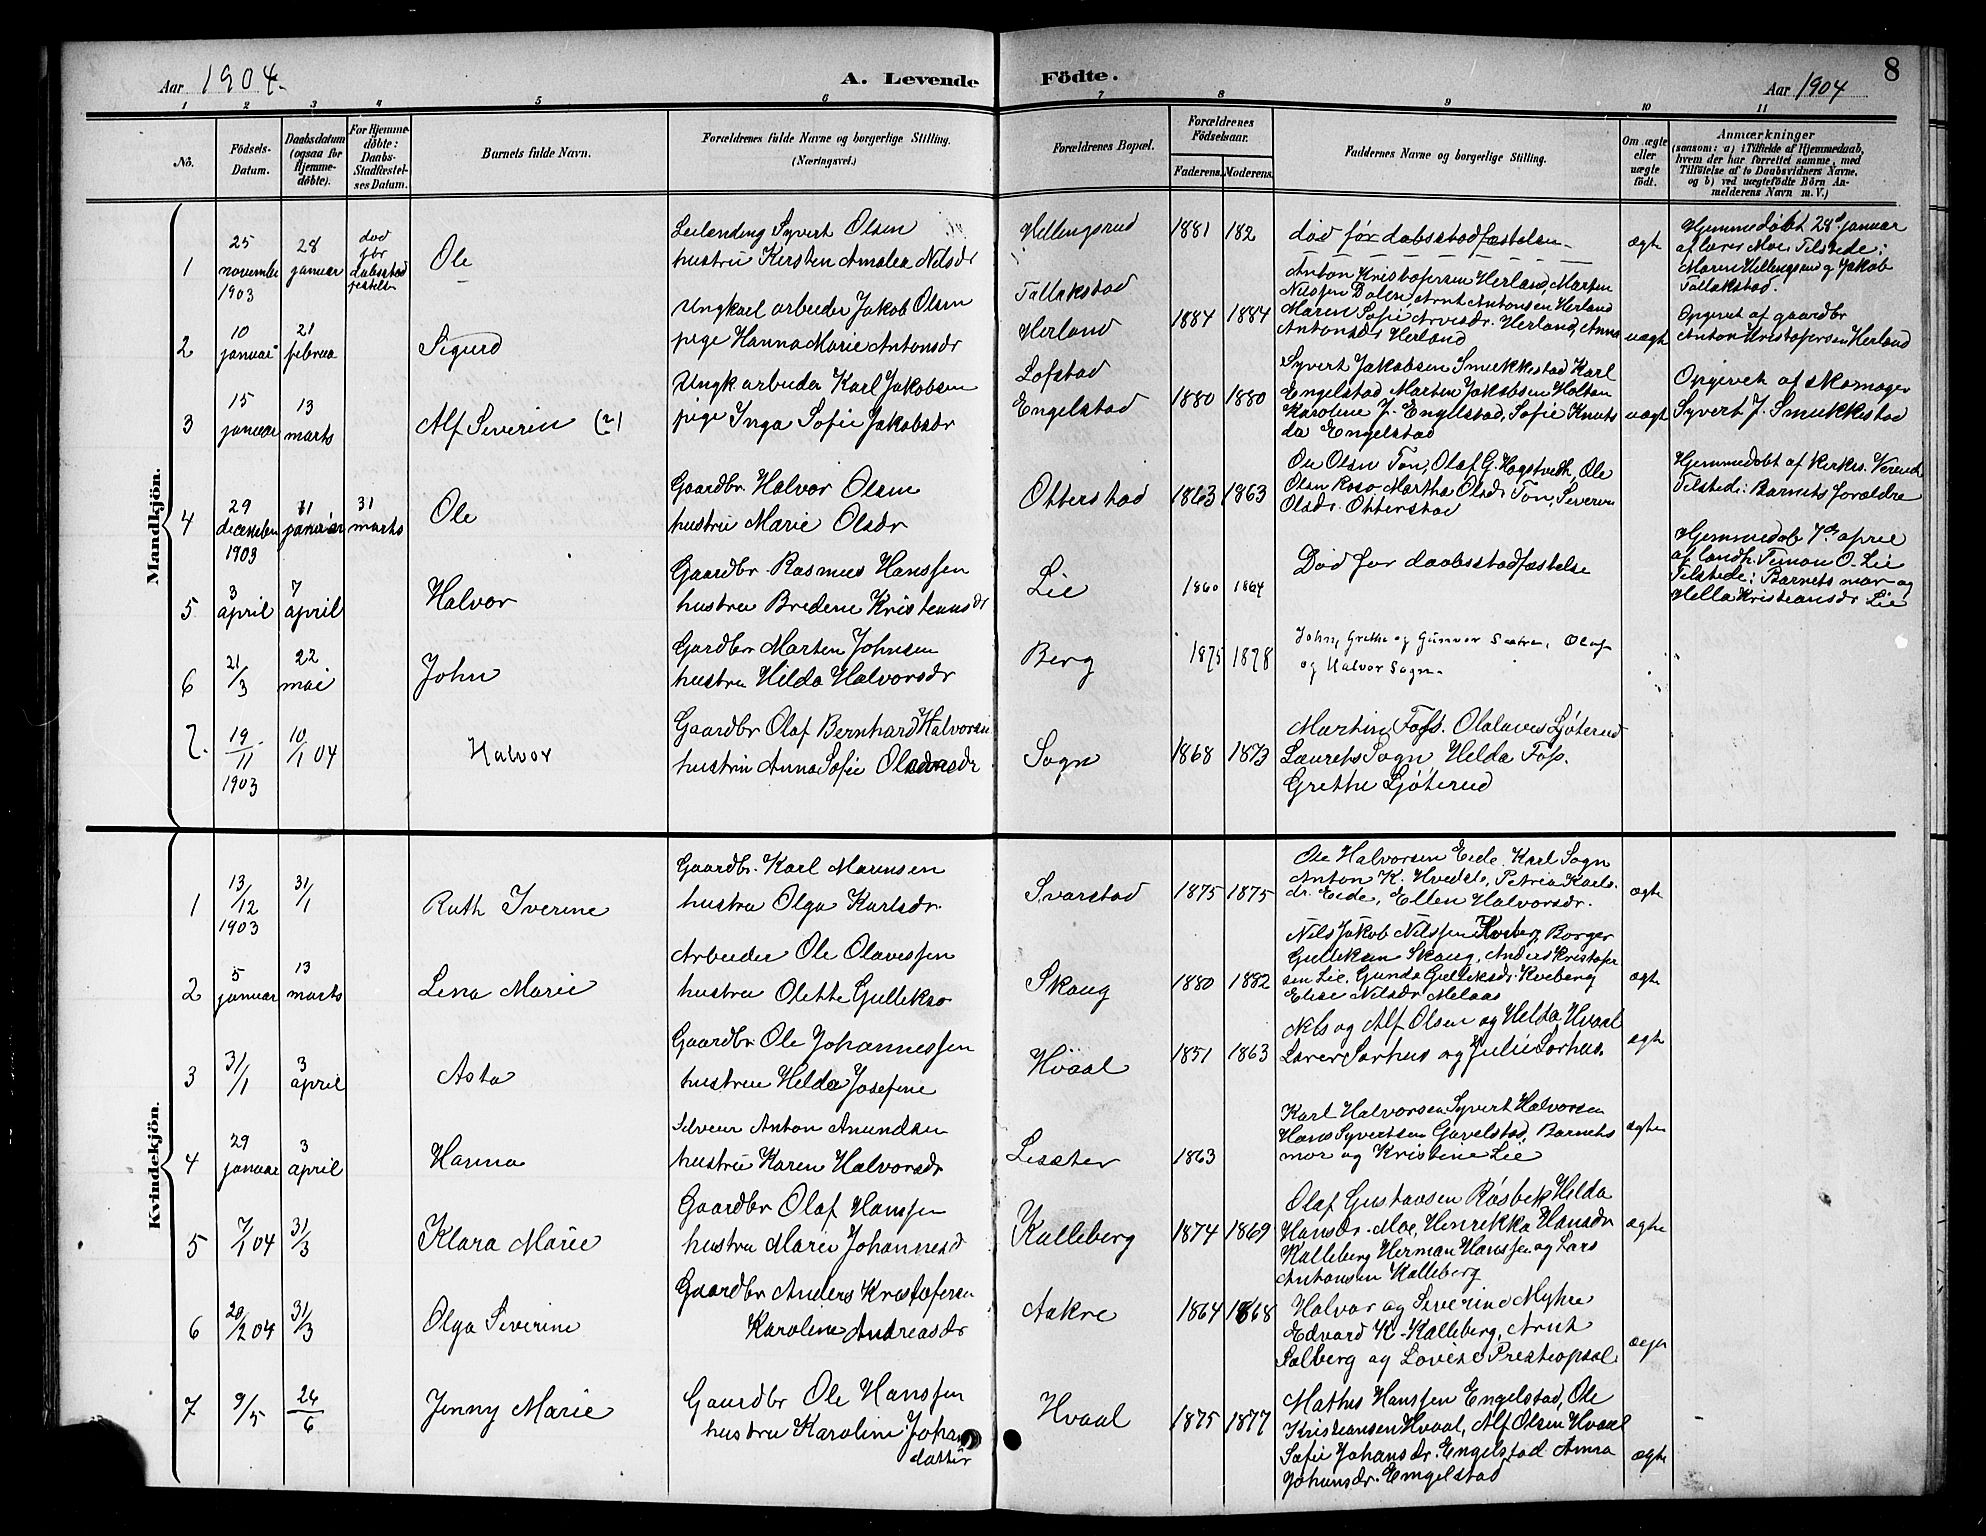 Aar 1904.
A. Levende Födte.
Aar 1904
8
1 2 3 4 5 6 7 8 9 10 11
Nô.
Födsels-Datum.
Daabsdatum (ogsaa for Hjemme-døbte).
For Hjemme-döbte: Daabs-Stadfæstel-ses Datum.
Barnets fulde Navn.
Forældrenes fulde Navne og borgerlige Stilling. (Næringsvei.)
Forældrenes Bopæl.
Forældrenes Födselsaar.
Faderens. Moderens.
Faddernes Navne og borgerlige Stilling.
Om ægte eller uægte födt.
Anmærkninger
(saasom: a) i Tilfælde af Hjemmedaab,
hvem der har forrettet samme, med
Tilföielse af to Daabsvidners Navne,
og b) ved uægtefödte Börn An-
melderens Navn m. V.)
Mandkjön.
1
25 november 1903
28 januar
død før dabsstadfestelse
Ole
Leilending Syvert Olsen
hustru Kirsten Amalea Nilsdr
Hellingsrud
1881 182
død før dabsstadfæstelsen
ægte
Hjemmedøbt 28d januar
af lærer Moe. Tilstede:
Maren Hellingsrud og Jakob
Tallakstad.
2
10 januar
21 februa
Sigurd
Ungkarl arbeider Jakob Olsen
pige Hanna Marie Antonsdr
Tallakstad
Herland
1884 1884
Anton Kristofersen Herland, Marten
Nilssen Dalen, Arnt Antonsen Herland
Maren Sofie Arvesdr. Herland, Anna
Antonsdr Herland
uægte
Opgivet af gaardbr
Anton Kristofersen Herland
3
15 januar
13 marts
Alf Severin (2)
Ungk arbeider Karl Jakobsen
pige Inga Sofie Jakobsdr
Lofstad
Engelstad
1880 1880
Syvert Jakobsen Smukkestad Karl
Engelstad, Marten Jakobsen Holtan
Karoline J. Engelstad, Sofie Knuts
da Engelstad
uægte
Opgivet af skomager
Syvert J. Smukkestad
4
29 december 1903
11 januar
31 marts
Ole
Gaardbr. Halvor Olsen
hustru Marie Olsdr
Otterstad
1863 1863
Ole Olsen Ton, Olaf G. Hogstvedt Ole
Olsen Martha Olsdr Ton, Severine
Olsdr. Otterstad
Hjemmedøbt af kirkes.
Tilstede: Barnets forældre
5
3 april
7 april
Halvor
Gaardbr. Rasmus Hanssen
hustru Bredine Kristensdr
Lie
1860 1864
Død før daabsstadfæstelse
Hjemmedøb 7de april
af landh. Timan O. Lie
Tilstede: Barnets mor og
Hella Kristiansdr Lie
6
21/3
22 mai
John
Gardbr Marten Johnsen
hustru Hilda Halvorsdr
Berg
1875 1878
John, Grethe og Gunvor Saatra, Olaf
og Halvor Sogn.
7.
19/11 1903
10/1 04
Halvor
Gaardbr Olaf Bernhard Halvorsen
hustru Anna Sofie
Sogn
1868 1873
Martin Foss. Olalaves Ljøterud
Laurets Sogn, Helda Foss.
Grethe Ljøterud
Kvindekjön.
1
13/12 1903
31/1
Ruth Iverine
Gaardbr. Karl Marensen
hustru Olga Karlsdr.
Svarstad
1875 1875
Ole Halvorsen Eide, Karl Sogn
Anton K. Hvedste, Petrea Karls.
dr. Eide, Ellen Halvorsdr.
ægte
2
5 januar
13 marts
Lena Marie
Arbeider Ole Olavessen
hustru Olette Gulleksd
Skaug
1880 1882
Nils Jakob Nilssen Borger
Gulleksen Skaug, Anders Kristofer
sen Lie, Gunda Gulleksdr. Kveberg
Elise Nilsdr Melaas
ægte
3
31/1
3 april
Asta
Gaardbr. Ole Johannessen
hustru Helda Josefine
Hvaal
1851 1863
Nels og Alf Olsen og Helda Hvaal
Lærer Sørhus og Julie Sørhus.
ægte
4
29 januar
3 april
Hanna
Selveier Anton Amundsen
hustru Karen Halvorsdr
Lisster
1863
Karl Halvorsen, Syvert Halvorsen
Hans Syvertsen Gavelstad, Barnets
mor og Kristine Lie
ægte
5
7/1 04
31/3
Klara Marie
Gaardbr Olaf Hanssen
hustru Marie Johannesd
Kalleberg
1874 1869
Olaf Gustavsen Røsbek, Hilda
Hansdr. Moe, Henrikka Hansdr
Kalleberg Herman Hanssen og Lars
Antonsen Kalleberg
ægte
6
20/2 04
31/3
Olga Severine
Gaardbr Anders Kristofersen
Karoline Andreasdr
Aakre
1864 1868
Halvor og Severine Myhre
Edvard K. Kalleberg, Arnt
Solberg og Lovise Presteopsal
7
9/5
26/6
Jenny Marie
Gaardbr Ole Hanssen
hustru Karoline Johan
datter
Hvaal
1875 1877
Mathus Hanssen Engelstad, Ole
Kristiansen Hvaal, Alf Olsen Hvaal
Sofie Johansdr. Engelstad Anna
Johansdr. Engelstad
ægte